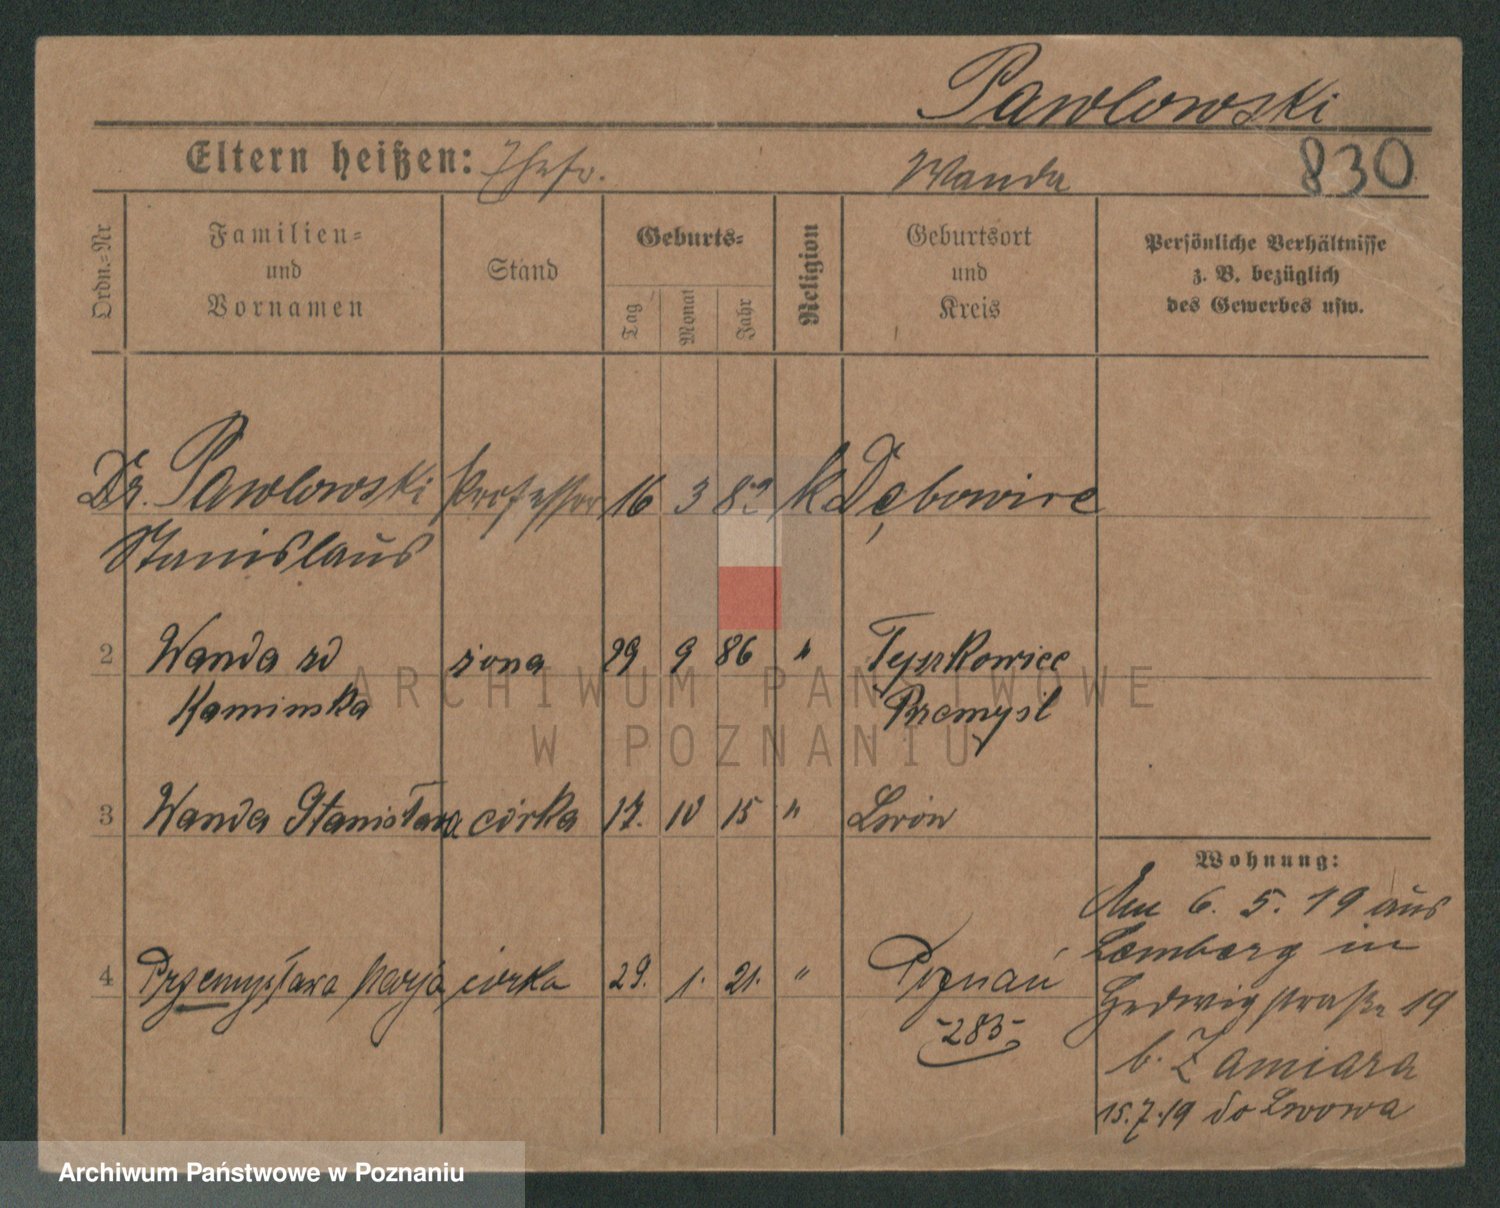 Pawlowski
Eltern heißen: Ehefr. Wanda 830
Ordn.-Nr.
Familien- und Vornamen
Stand
Geburts-
Tag
Monat
Jahr
Religion
Geburtsort und Kreis
Persönliche Verhältnisse z. B. bezüglich des Gewerbes usw.
Dr. Pawlowski Professor 16 3 82 k Dębowiec
Stanislaus
2 Wanda zd żona 29 9 86 " Tyszkowice
Kaminska Przemyśl
3 Wanda Stanisława córka 17. 10 15 " Lwów
Wohnung:
Am 6. 5. 19 aus
Lemberg in
4 Przemysława Marja córka 29. 1. 21. " Poznań
Hedwigstraße 19
-283-
b. Zamiara
15.7.19 do Lwowa
ARCHIWUM PAŃSTWOWE
W POZNANIU
Archiwum Państwowe w Poznaniu